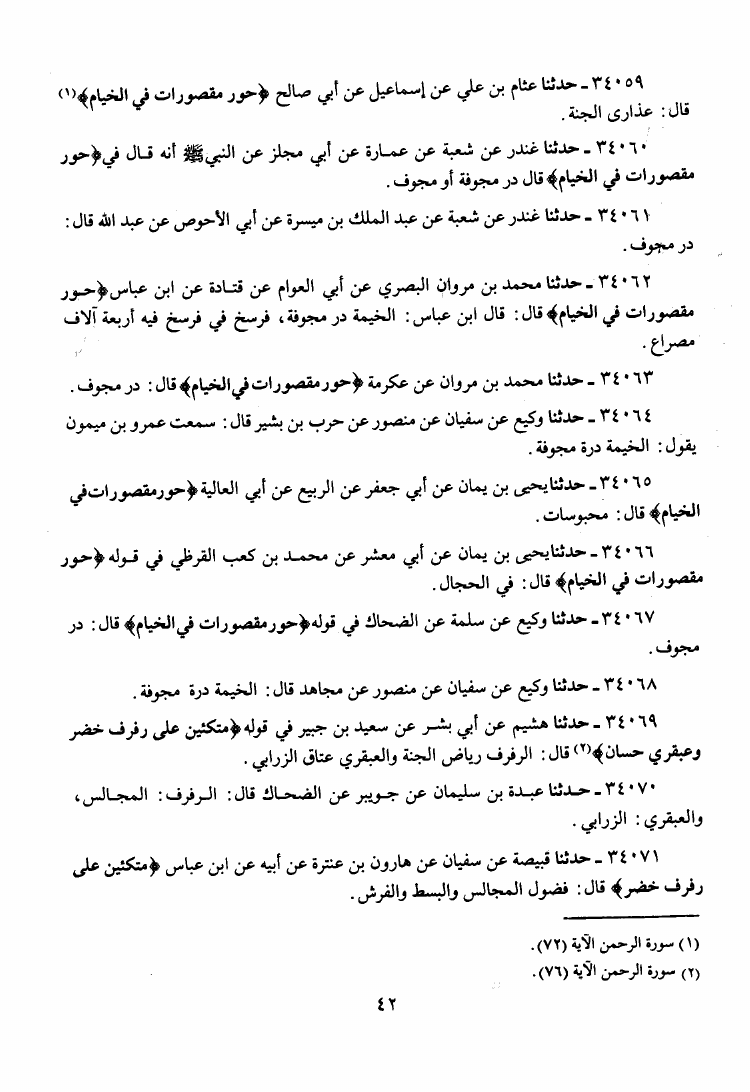 ٣٤٠٥٩ ـ حدثنا عثام بن علي عن إسماعيل عن أبي صالح ﴿حور مقصورات في الخيام﴾(١)
قال: عذارى الجنة.
٣٤٠٦٠ ـ حدثنا غندر عن شعبة عن عمـارة عن أبي مجلز عن النبي ﷺ أنه قـال في ﴿حور
مقصورات في الخيام﴾ قال در مجوفة أو مجوف.
٣٤٠٦١ ـ حدثنا غندر عن شعبة عن عبد الملك بن ميسرة عن أبي الأحوص عن عبد الله قال:
در مجوف.
٣٤٠٦٢ ـ حدثنا محمد بن مروان البصري عن أبي العوام عن قتـادة عن ابن عباس ﴿حـور
مقصورات في الخيام﴾ قال: قال ابن عباس: الخيمة در مجوفة، فرسخ في فرسخ فيه أربعة آلاف
مصراع.
٣٤٠٦٣ ـ حدثنا محمد بن مروان عن عكرمة ﴿حور مقصورات في الخيام﴾ قال: در مجوف.
٣٤٠٦٤ ـ حدثنا وكيع عن سفيان عن منصور عن حرب بن بشير قال: سمعت عمرو بن ميمون
يقول: الخيمة درة مجوفة.
٣٤٠٦٥ ـ حدثنا يحيى بن يمان عن أبي جعفر عن الربيع عن أبي العالية ﴿حور مقصورات في
الخيام﴾ قال: محبوسات.
٣٤٠٦٦ ـ حدثنا يحيى بن يمان عن أبي معشر عن محمـد بن كعب القرظي في قـوله ﴿حور
مقصورات في الخيام﴾ قال: في الحجال.
٣٤٠٦٧ ـ حدثنا وكيع عن سلمة عن الضحاك في قوله ﴿حور مقصورات في الخيام﴾ قال: در
مجوف.
٣٤٠٦٨ ـ حدثنا وكيع عن سفيان عن منصور عن مجاهد قال: الخيمة درة مجوفة.
٣٤٠٦٩ ـ حدثنا هشيم عن أبي بشـر عن سعيد بن جبير في قوله ﴿متكئين على رفرف خضر
وعبقري حسان﴾(٢) قال: الرفرف رياض الجنة والعبقري عتاق الزرابي.
٣٤٠٧٠ ـ حـدثنا عبـدة بن سليمان عن جـويبر عن الضحـاك قال: الـرفرف: المجـالس،
والعبقري: الزرابي.
٣٤٠٧١ ـ حدثنا قبيصة عن سفيان عن هارون بن عنترة عن أبيه عن ابن عباس ﴿متكئين على
رفرف خضر﴾ قال: فضول المجالس والبسط والفرش.
(١) سورة الرحمن الآية (٧٢).
(٢) سورة الرحمن الآية (٧٦).
٤٢